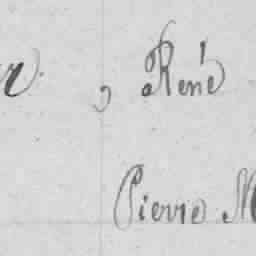 , René
Pierre